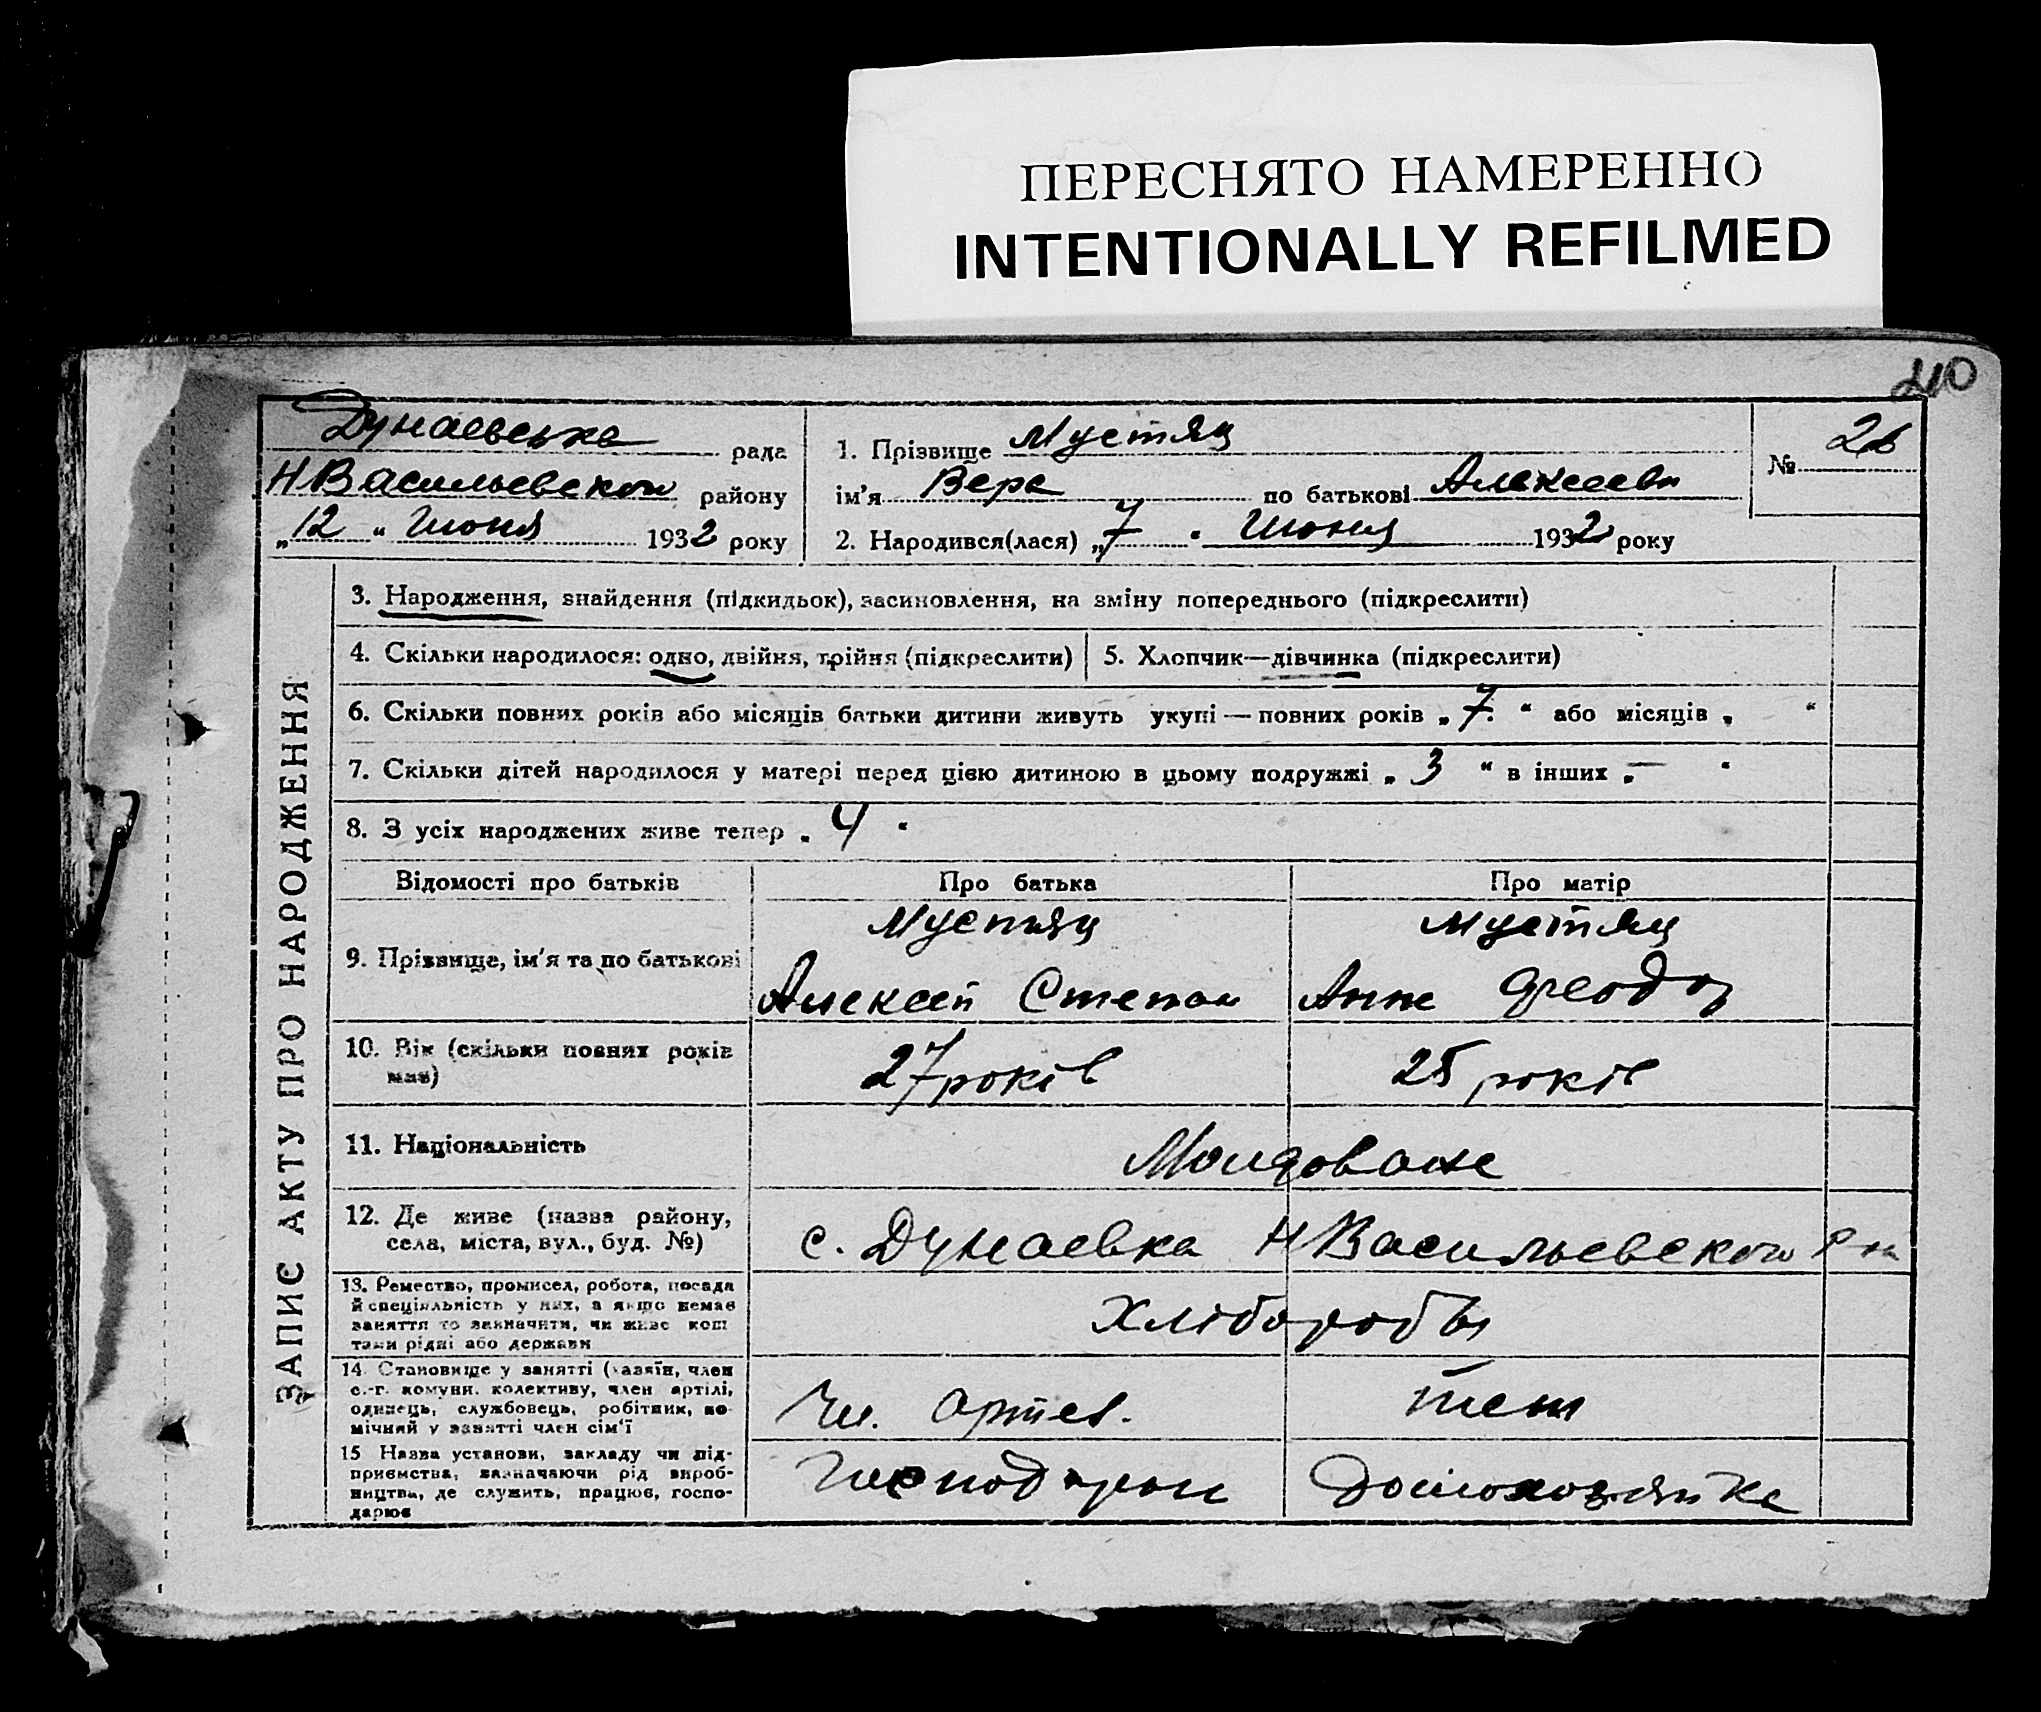 ПЕРЕСНЯТО НАМЕРЕННО
INTENTIONALLY REFILMED
210
Дунаевська рада
НВасильевского району
„12“ Июня 1932 року
1. Прізвище Мустяц
ім’я Вера по батькові Алексеевн
2. Народився(лася) „7“ Июня 1932 року
№ 26
ЗАПИС АКТУ ПРО НАРОДЖЕННЯ
3. Народження, знайдення (підкидьок), засиновлення, на зміну попереднього (підкреслити)
4. Скільки народилося: одно, двійня, трійня (підкреслити)
5. Хлопчик—дівчинка (підкреслити)
6. Скільки повних років або місяців батьки дитини живуть укупі — повних років „7“ або місяців „ “
7. Скільки дітей народилося у матері перед цією дитиною в цьому подружжі „3“ в інших „—“
8. З усіх народжених живе тепер „4“
Відомості про батьків Про батька Про матір
9. Прізвище, ім’я та по батькові
Мустяц
Алексей Степан
Мустяц
Анна Феодор
10. Вік (скільки повних років
мав)
27 років
25 років
11. Національність
Молдоване
12. Де живе (назва району,
села, міста, вул., буд. №)
с. Дунаевка НВасильевского р-на
13. Ремество, промисел, робота, посада
й спеціяльність у них, а якщо немає
заняття то зазначити, чи живе кош
тами рідні або держави
Хліборобы
14. Становище у занятті (хазяїн, член
с.-г. комуни, колективу, член артілі,
одинець, службовець, робітник, по-
мічний у занятті член сім’ї
Чл. артел.
теж
15 Назва установи, закладу чи під-
приємства, зазначаючи рід вироб-
ництва, де служить, працює, госпо-
дарює
Господаром
Домохозяйка